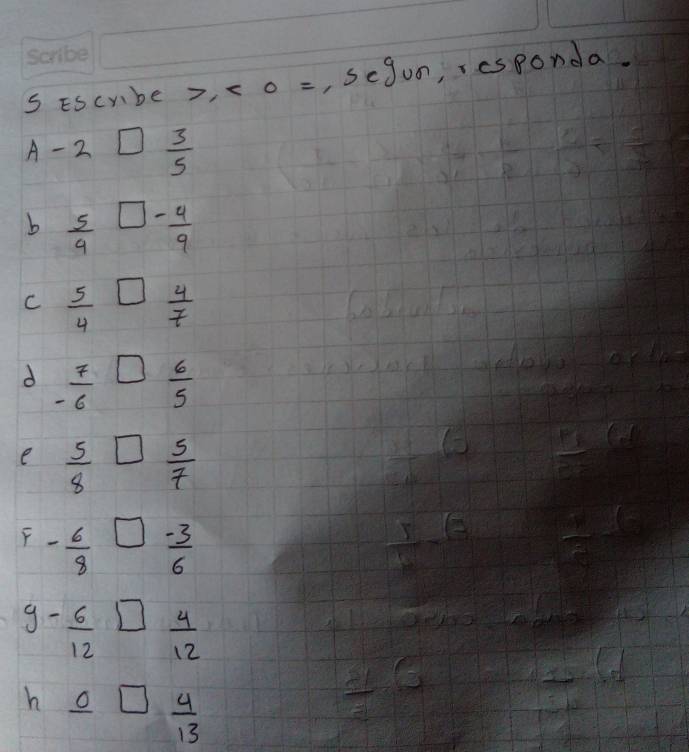 Scribe
5 Escribe >, < o =, segun, responda.
A -2 □ 3/5
b 5/9 □ -4/9
c 5/4 □ 4/7
d -7/6 □ 6/5
e 5/8 □ 5/7
F -6/8 □ -3/6
g -6/12 □ 4/12
h 0 □ 4/13